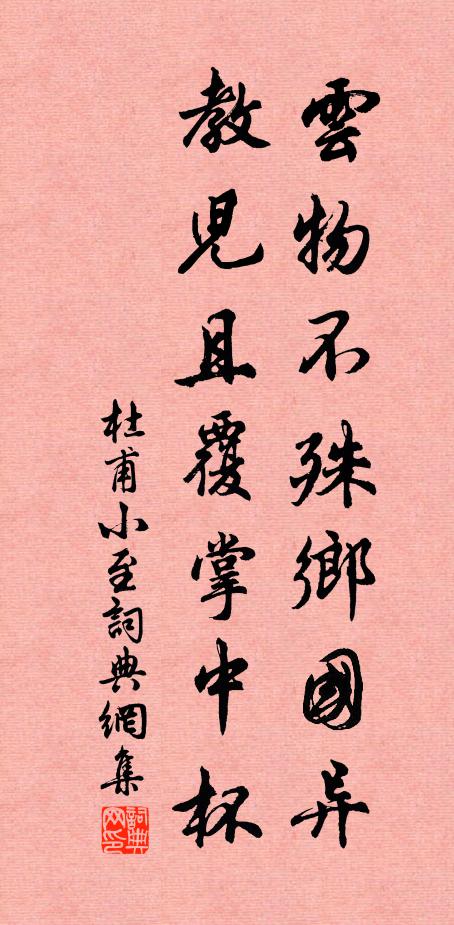 雲物不殊鄉國异
教兒且覆掌中杯
杜甫小至詞典網集
詞典网印